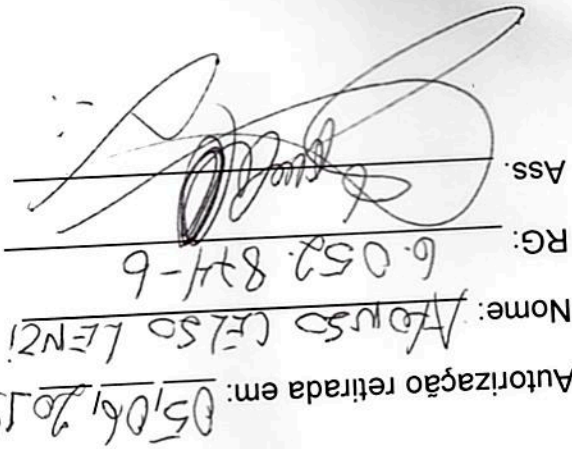 Autorização retirada em: 05/06/201
Nome: AFONSO CELSO LENZI
RG: 6.052.874-6
Ass.